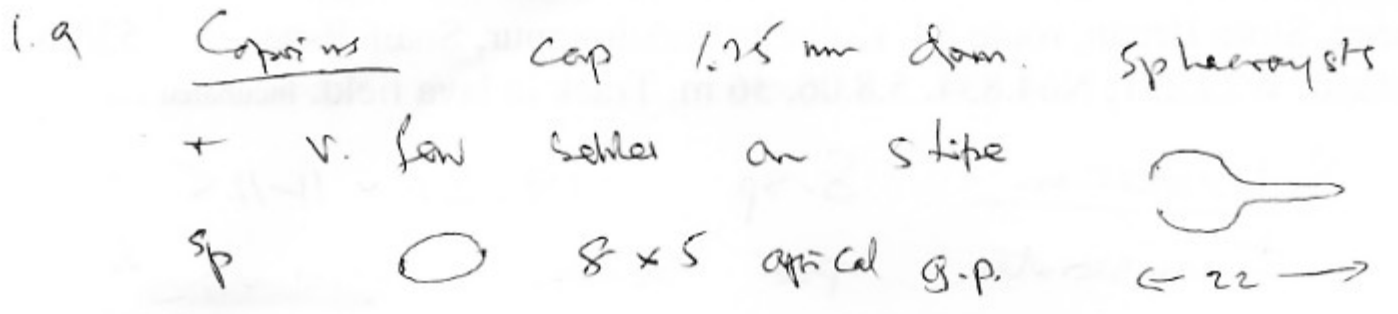 1.9 Coprinus cap 1.25 mm diam. Sphaerocysts
+ v. few setules on stipe
sp 8 x 5 apical g.p. ← 22 →